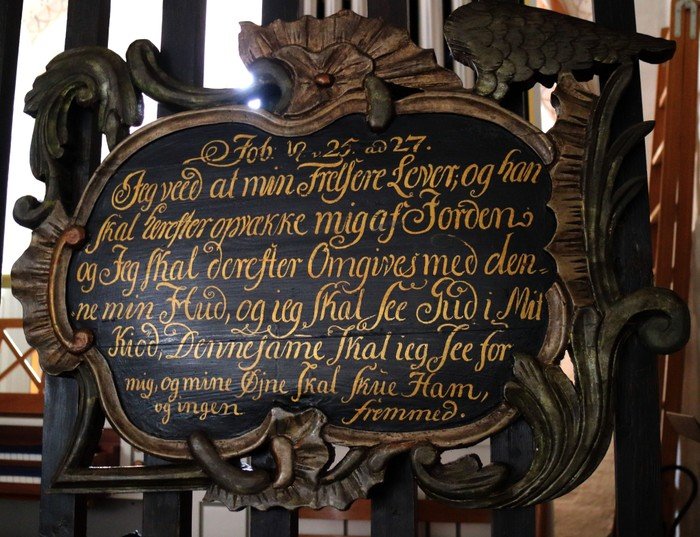 Job. v. 25. ad 27.
Jeg veed at min Frelsere Lever; og han
skal derefter opvække mig af Jorden
og Jeg skal derefter Omgives med den-
ne min Hud, og ieg skal see Gud i Mit
Kiød, Denne same skal ieg see for
mig, og mine Øjne skal skue Ham,
og ingen fremmed.